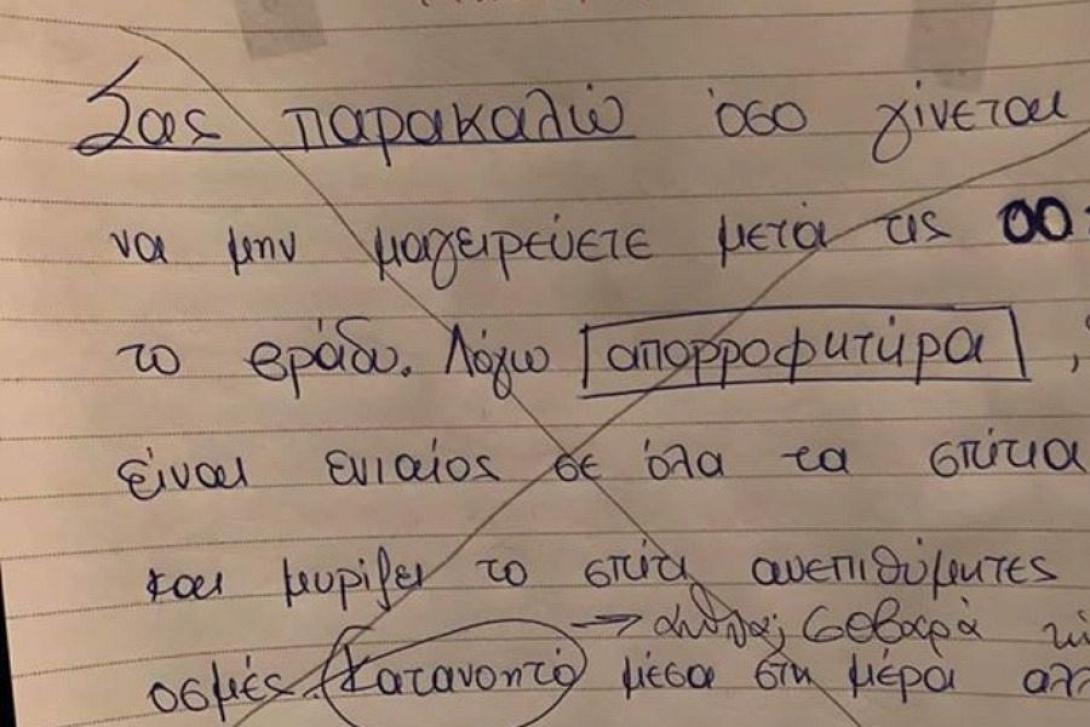 Σας παρακαλώ όσο γίνεται
να μην μαγειρεύετε μετά τις 00:
το βράδυ. Λόγω απορροφιτήρα,
είναι ενιαίος σε όλα τα σπίτια
και μυρίζει το σπίτι ανεπιθύμητες
→ Σοβαρά
οσμές. Κατανοητό μέσα στη μέρα αλ